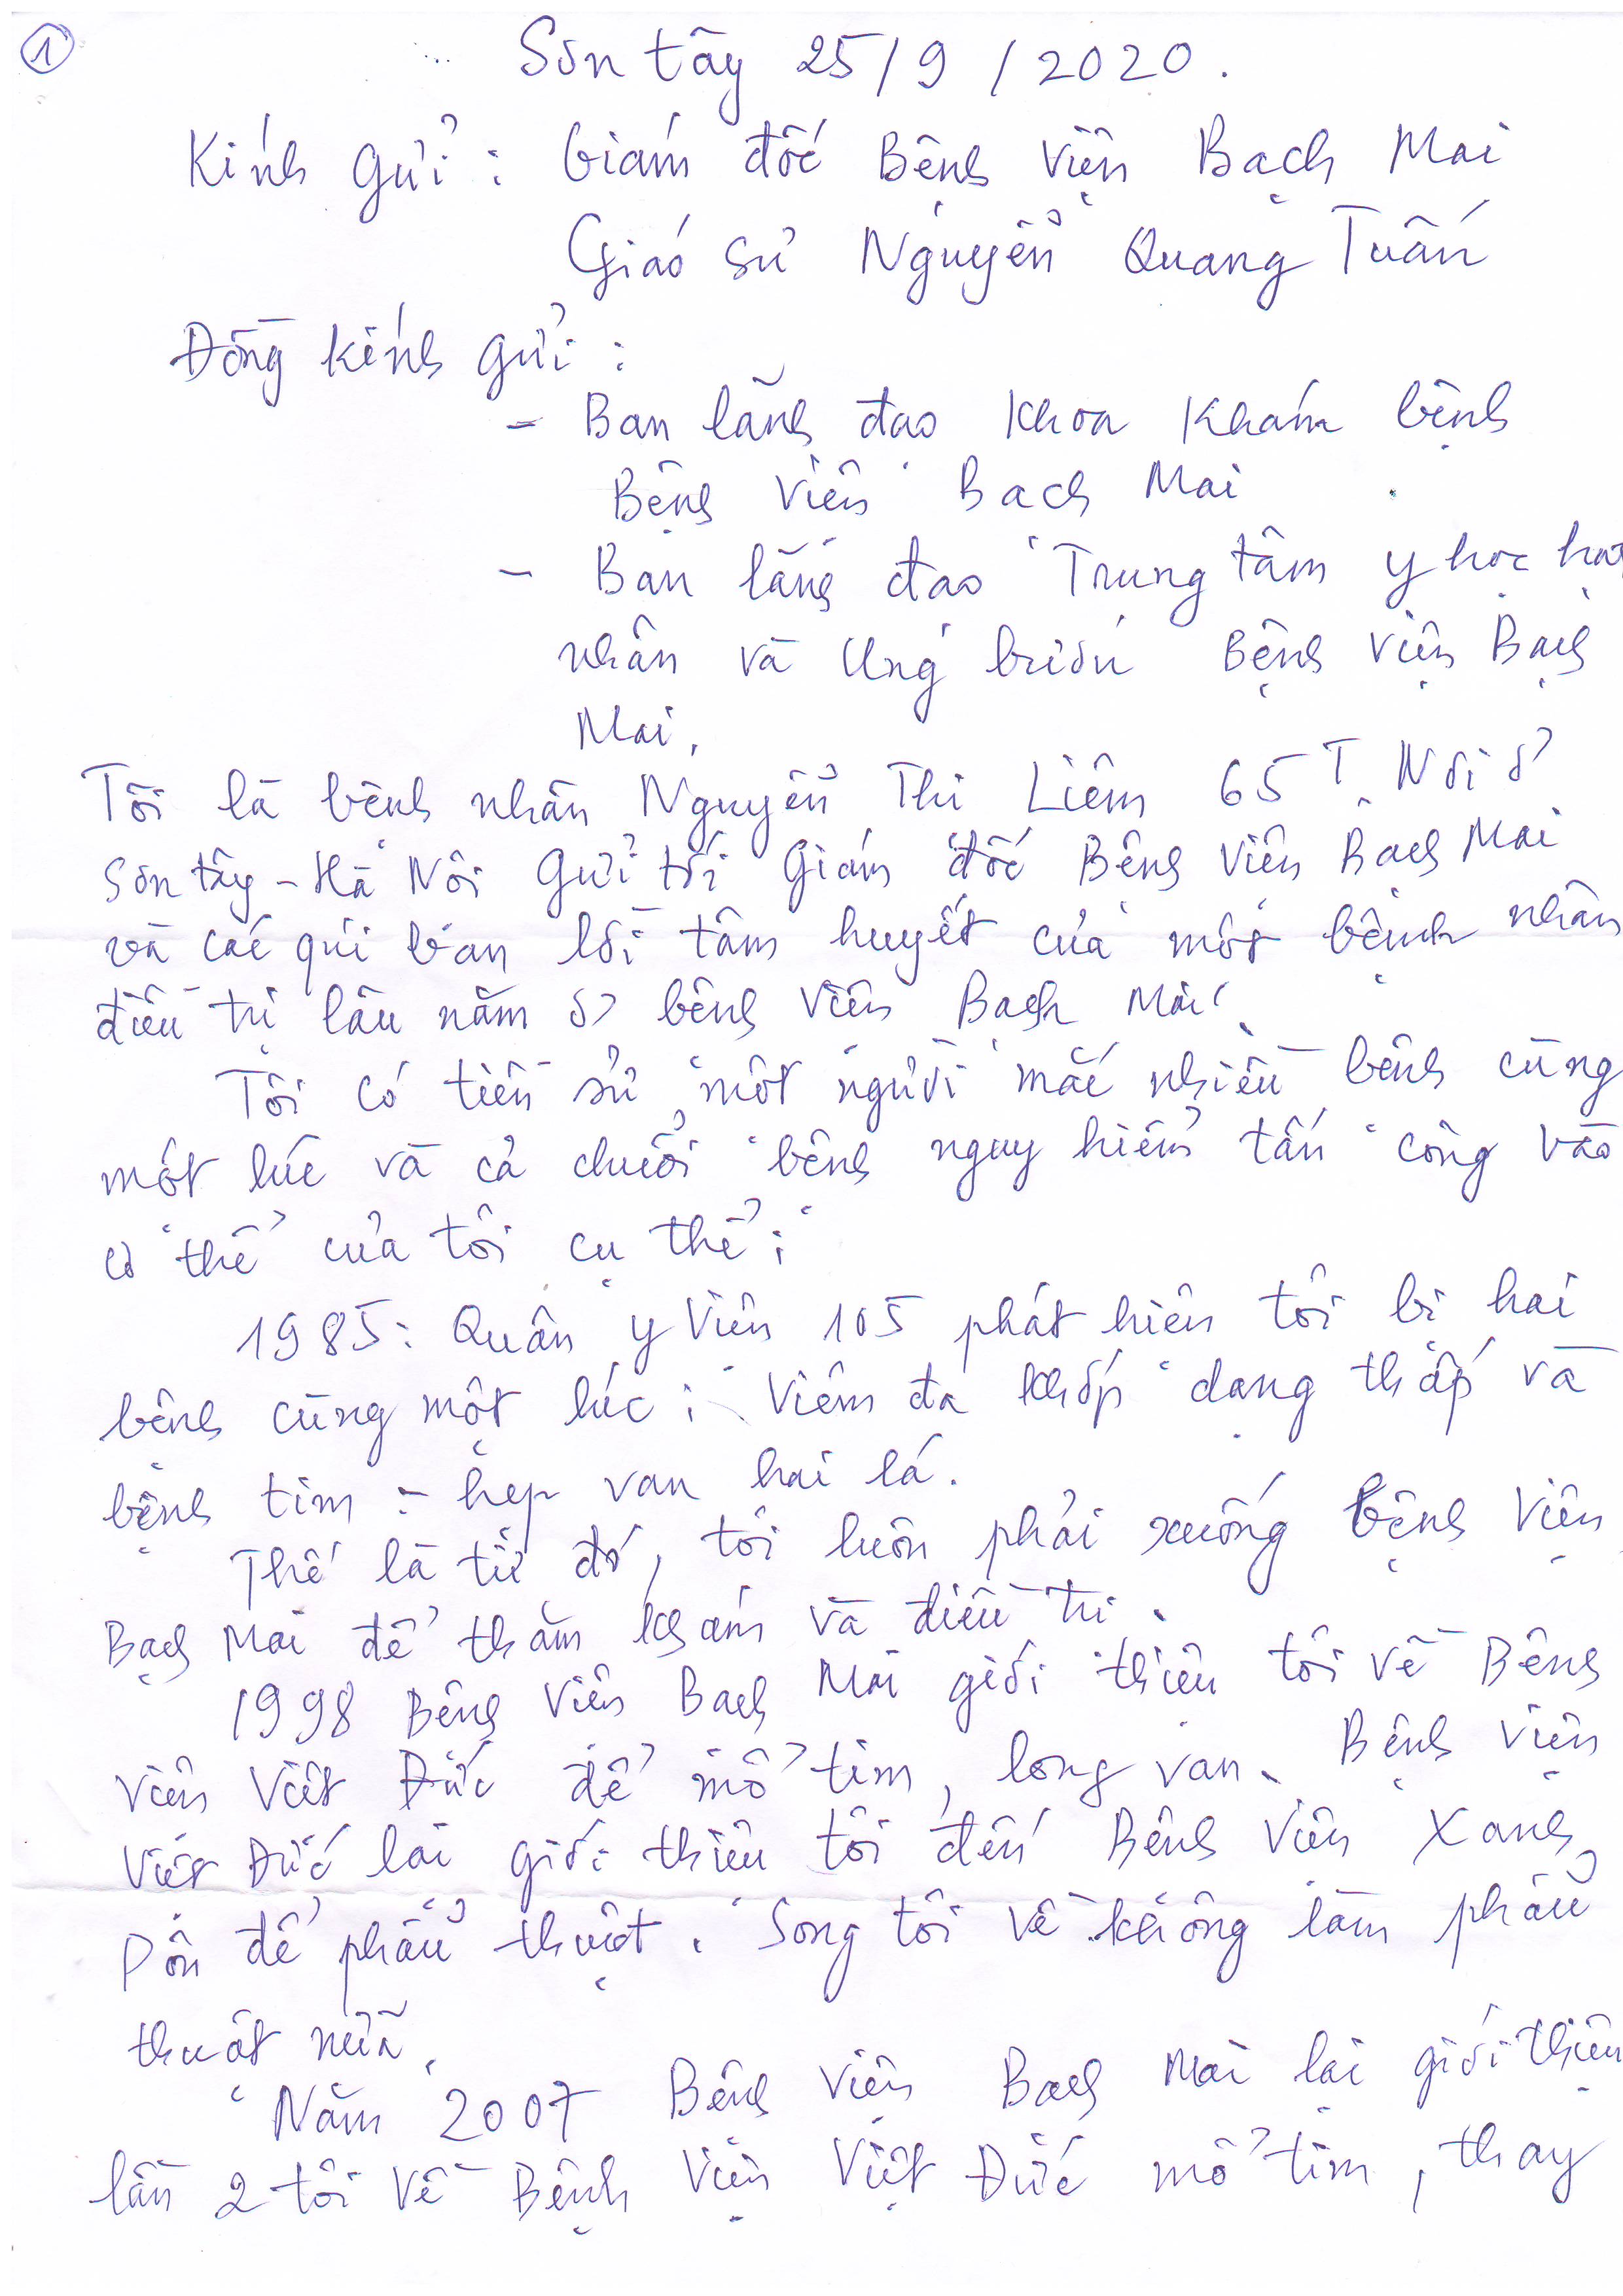 ①
Sơn tây 25/9/2020.
Kính gửi : Giám đốc Bệnh viện Bạch Mai
Giáo sư Nguyễn Quang Tuấn
Đồng kính gửi :
- Ban lãnh đạo Khoa Khám bệnh
Bệnh viện Bạch Mai .
- Ban lãnh đạo Trung tâm y học hạt
nhân và Ung bướu Bệnh viện Bạch
Mai.
Tôi là bệnh nhân Nguyễn Thị Liêm 65 T. Nơi ở
Sơn tây - Hà Nội Gửi tới Giám đốc Bệnh viện Bạch Mai
và các quí ban lời tâm huyết của một bệnh nhân
điều trị lâu năm ở bệnh viện Bạch Mai.
Tôi có tiền sử một người mắc nhiều bệnh cùng
một lúc và cả chuỗi bệnh nguy hiểm tấn công vào
cơ thể của tôi cụ thể :
1985: Quân y Viện 105 phát hiện tôi bị hai
bệnh cùng một lúc : Viêm đa khớp dạng thấp và
bệnh tim - hẹp van hai lá.
Thế là từ đó, tôi luôn phải xuống bệnh viện
Bạch Mai để thăm khám và điều trị.
1998 Bệnh viện Bạch Mai giới thiệu tôi về Bệnh
viện Việt Đức để mổ tim, long van. Bệnh viện
Việt Đức lại giới thiệu tôi đến Bệnh viện Xanh
Pôn để phẫu thuật. Song tôi về không làm phẫu
thuật nữa.
Năm 2007 Bệnh viện Bạch Mai lại giới thiệu
lần 2 tôi về Bệnh viện Việt Đức mổ tim, thay